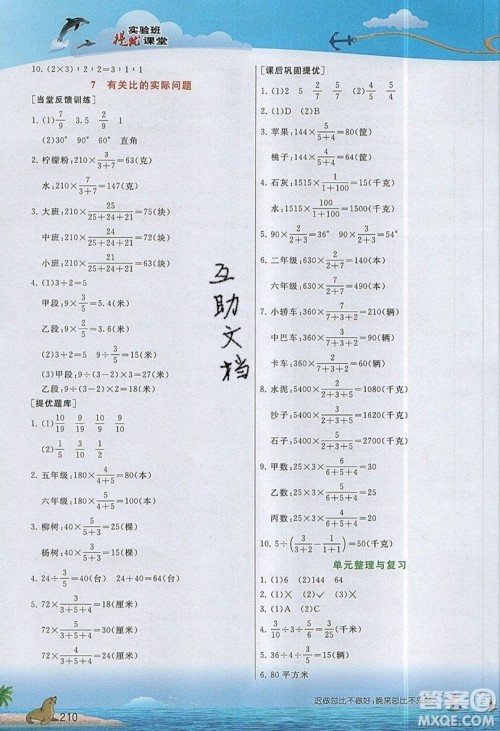 实验班
提优课堂
10. (2×3)∶2∶2=3∶1∶1
7 有关比的实际问题
[当堂反馈训练]
1. (1) 7/9 3.5 2/7
(2)30° 60° 直角
2. 柠檬粉:210×3/(3+7)=63(克)
水:210×7/(3+7)=147(克)
3. 大班:210×25/(25+24+21)=75(块)
中班:210×24/(25+24+21)=72(块)
小班:210×21/(25+24+21)=63(块)
4. (1)3+2=5
甲段:9×3/5=5.4(米)
乙段:9×2/5=3.6(米)
(2)甲段:9÷(3-2)×3=27(米)
乙段:9÷(3-2)×2=18(米)
[提优题库]
1. (1) 10/19 9/19 10/9 9/10
(2) 1/5 3/10
2. 五年级:180×4/(4+5)=80(本)
六年级:180×5/(4+5)=100(本)
3. 柳树:40×5/(3+5)=25(棵)
杨树:40×3/(3+5)=15(棵)
4. 24÷3/5=40(台) 24+40=64(台)
5. 72×1/(1+3)=18(厘米)
72×1/(1+3)=18(厘米)
互助文档
[课后巩固提优]
1. (1)5 2 5/7 2/7 (2)15 9
2. (1)D (2)B
3. 苹果:144×7/(7+5)=84(筐)
桃子:144×5/(7+5)=60(筐)
4. 石灰:1515×1/(1+100)=15(千克)
水:1515×100/(1+100)=1500(千克)
5. 90°×2/(2+3)=36° 90°×3/(2+3)=54°
6. 二年级:630×2/(2+5)=180(元)
六年级:630×5/(2+5)=450(元)
7. 小轿车:360×7/(7+3+2)=210(辆)
中巴车:360×3/(7+3+2)=90(辆)
卡车:360×2/(7+3+2)=60(辆)
8. 水泥:5400×2/(2+3+5)=1080(千克)
沙子:5400×3/(2+3+5)=1620(千克)
石子:5400×5/(2+3+5)=2700(千克)
9. 甲数:25×3×6/(6+5+4)=30
乙数:25×3×5/(6+5+4)=25
丙数:25×3×4/(6+5+4)=20
10. 5÷(3/(3+2)-1/(1+1))=50(千克)
单元整理与复习
1. (1)6 (2)144 (3)16
2. (1)× (2)✓ (3)×
3. (1)A (2)D
4. 3/10÷3/5÷3/4=2/3(千米)
5. 36÷4/5÷3=15(辆)
6. 80平方米
迟做总比不做好;晚来总比不来
210
答案圈
MXQE.COM